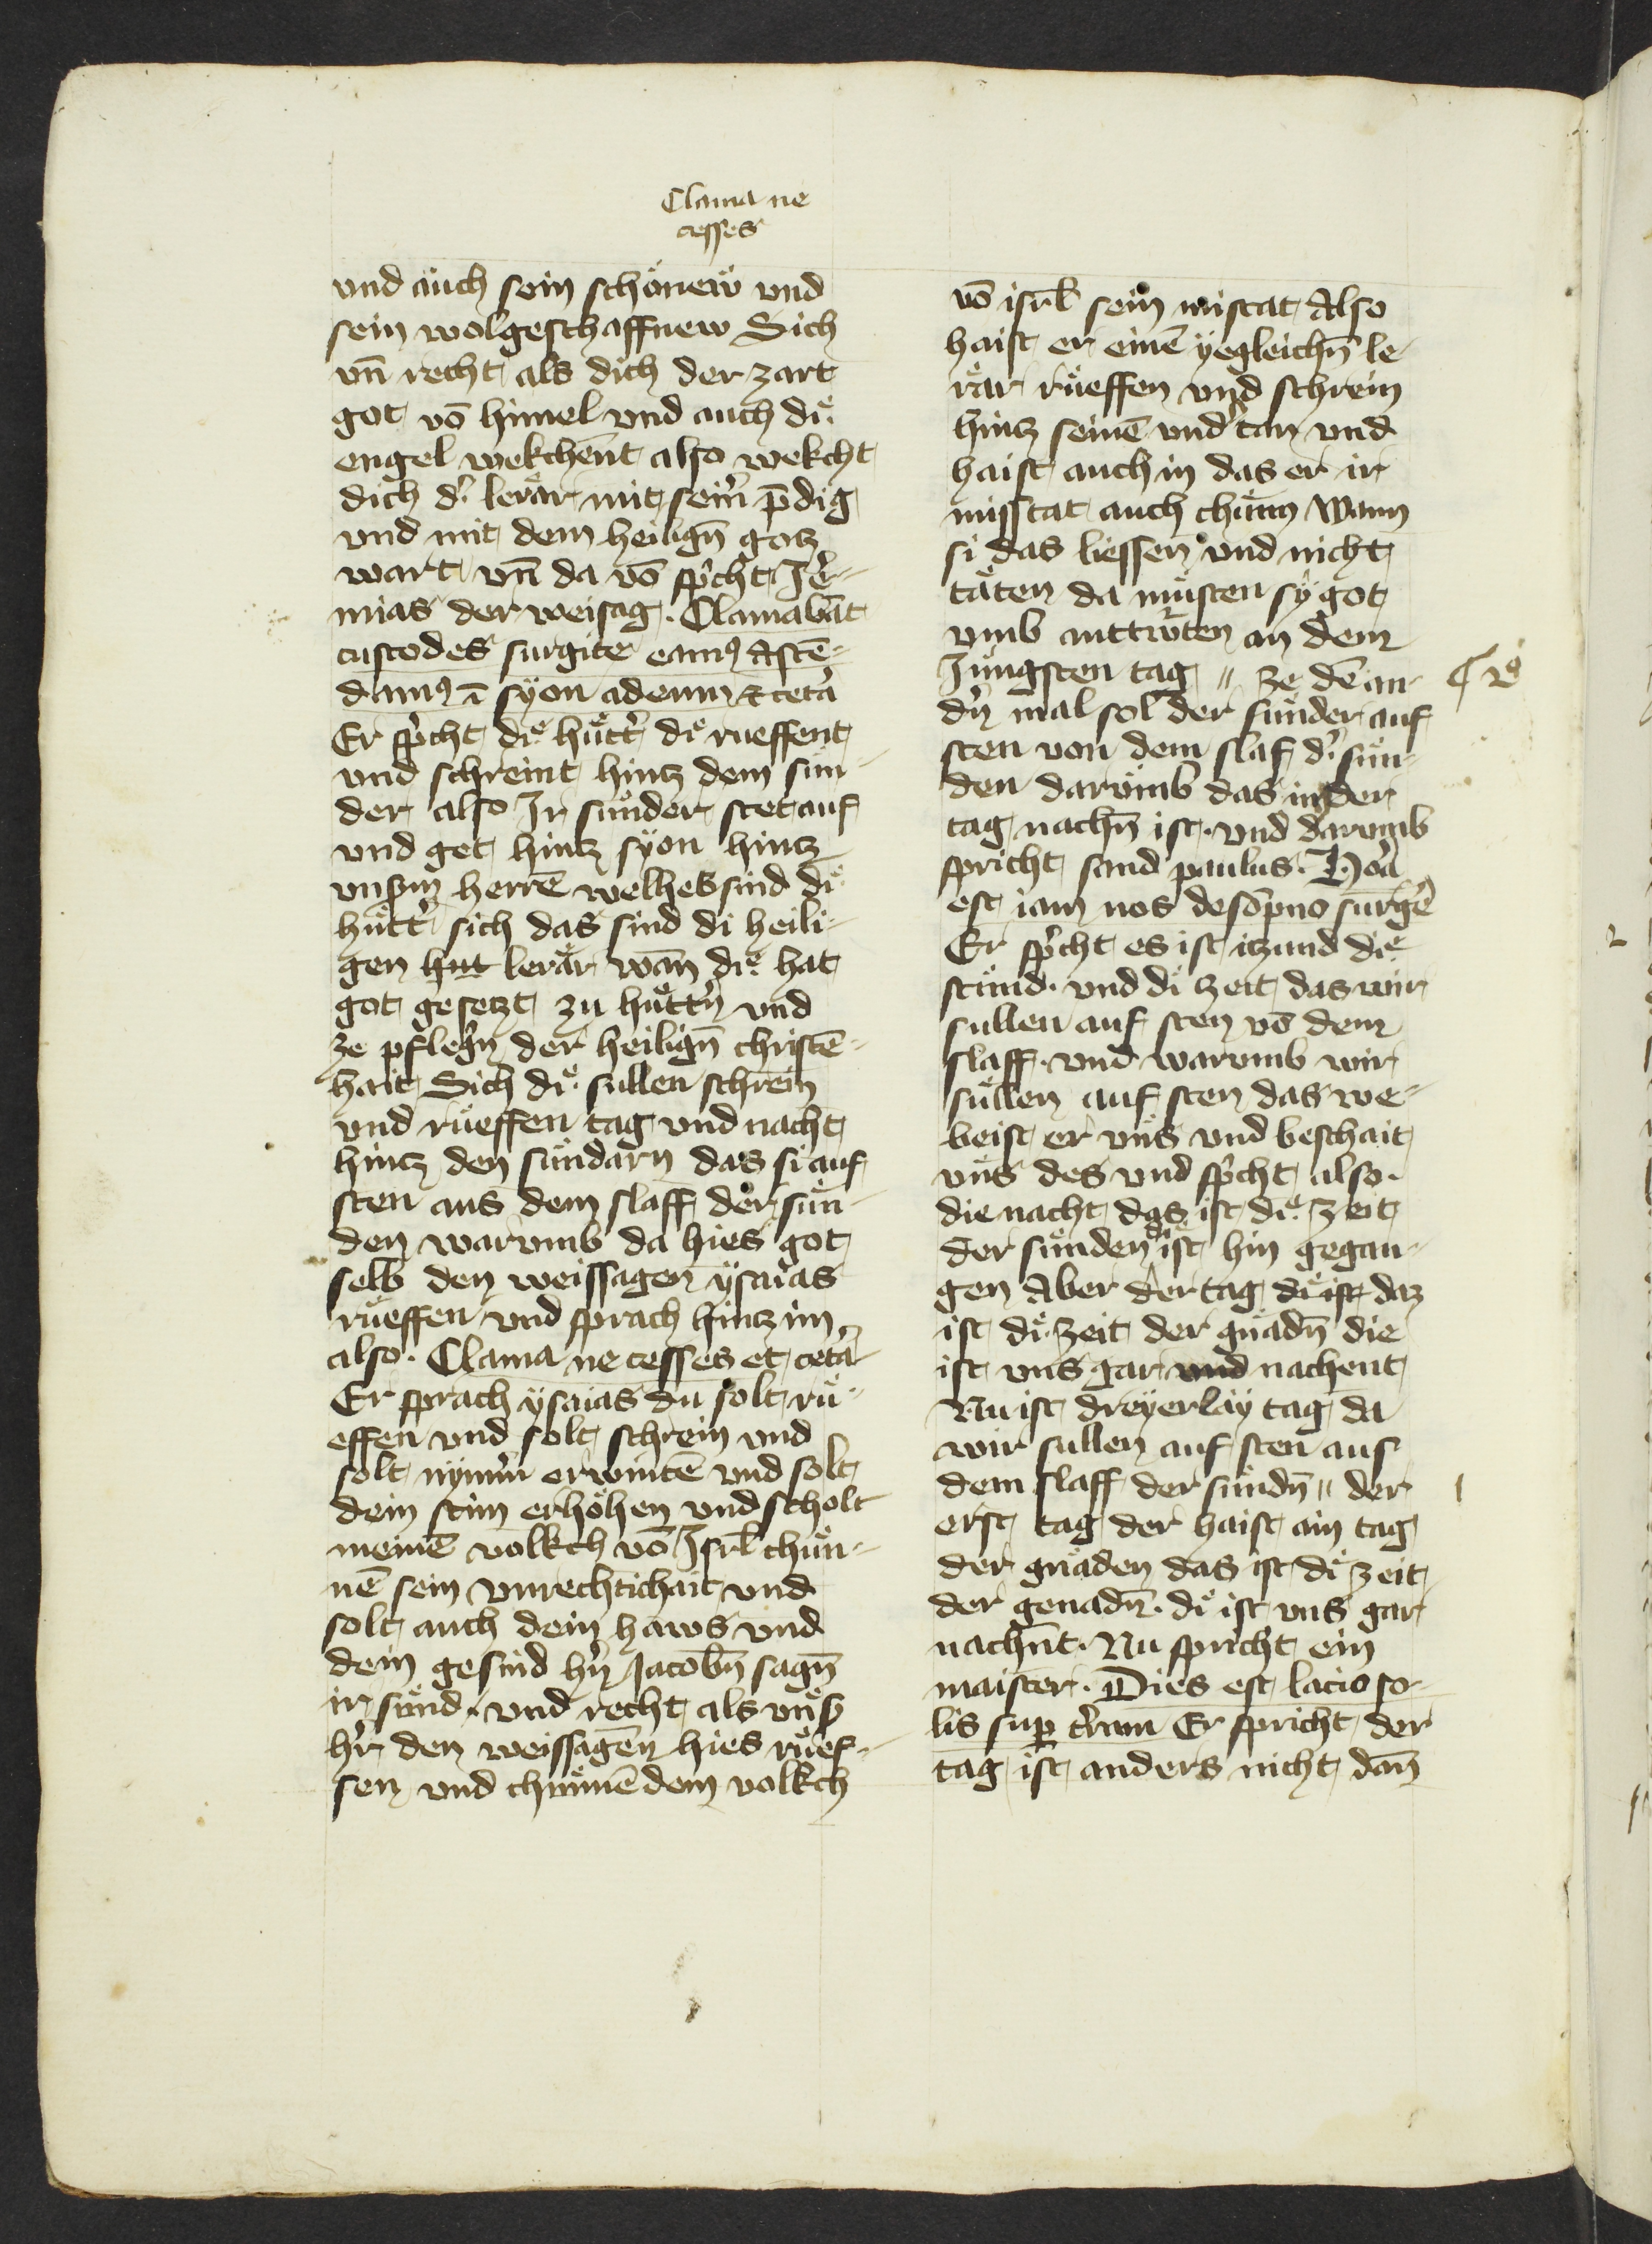 Clama ne
cesses
vnd auch sein schönew vnd
sein wolgeschaffnew Sich
vn̄ recht als dich der zart
got vō himel vnd auch diͤ
engel wekchēnt also wekcht
dich d' lerär mit seim̄ p̄dig
vnd mit dem heilign̄ gotz
wart vn̄ da vō sp'cht Jer̄-
mias der weisag. Clamabāt
custodes surgite eamꝰ Ascē-
damꝰ ī syon ad eum ⁊ cet̄a
Er sp'cht diͤ hütt' diͤ rueffent
vnd schreint hintz dem sün-
der also Jr sünder stet auf
vnd get hintz syon hintz
vnsm̄ herrē welhes sind diͤ
hütt' sich das sind di heili-
gen hut lerär wan̄ diͤ hat
got gesetzt zu hüttn̄ vnd
ze pflegn̄ der heilign̄ christē-
hait Sich diͤ sullen schrein
vnd rüeffen tag vnd nacht
hintz den sündarn das si auf
sten aus dem slaff der sün-
den warumb da hies got
selb den weissagen ysaias
rüeffen vnd sprach hintz im
also. Clama ne cesses et cet̄a
Er sprach ysaias du solt rü-
effen vnd solt schrein vnd
solt nym̄m̄ erwintē vnd solt
dein stim erhöhen vnd scholt
meinē volkch vō Jsrl̄ chün-
nē sein vnrechtichait vnd
solt auch dein haws vnd
dein gesind hn̄ Jacobn̄ sagn̄
ir sünd. vnd recht als vns'
h'r den weissagen hies rüef-
fen vnd chünnē dem volkch
vō isrl̄ sein mistat Also
haist er einē yegleichn̄ le-
rär rüeffen vnd schrein
hintz seinē vnd'tan vnd
haist auch in das er ir
misstat auch chünn Wann
si das liessen vnd nicht
täten da müsten sy got
vmb anttwrten an dem
Jungsten tag // ze dē an-
dn̄ mal sol der sünder auf
sten von dem slaf d' sün-
den darumb das in der
tag nachn̄ ist. vnd darumb
spricht sand paulus. Hora
est iam nos de sōpno surgē
Er sp'cht es ist itzund diͤ
stund. vnd diͤ zeit das wir
sullen auf sten vō dem
slaff. vnd warumb wir
süllen auf sten das we-
beist er vns vnd beschait
vns des vnd sp'cht also.
die nacht das ist diͤ zeit
der sünden diͤ ist hin gegan-
gen Aber der tag diͤ ist daz
ist diͤ zeit der gnadn̄ die
ist vns gar vnd nachent
Nu ist dreyerlay tag da
wir sullen auf sten aus
dem slaff der sündn̄ // der
erst tag der haist ain tag
der gnaden das ist diͤ zeit
der genadn̄. diͤ ist vns gar
nachn̄t. Nu spricht ein
maister. Dies est lacio so-
lis sup t'ram Er spricht der
tag ist anders nicht dan̄